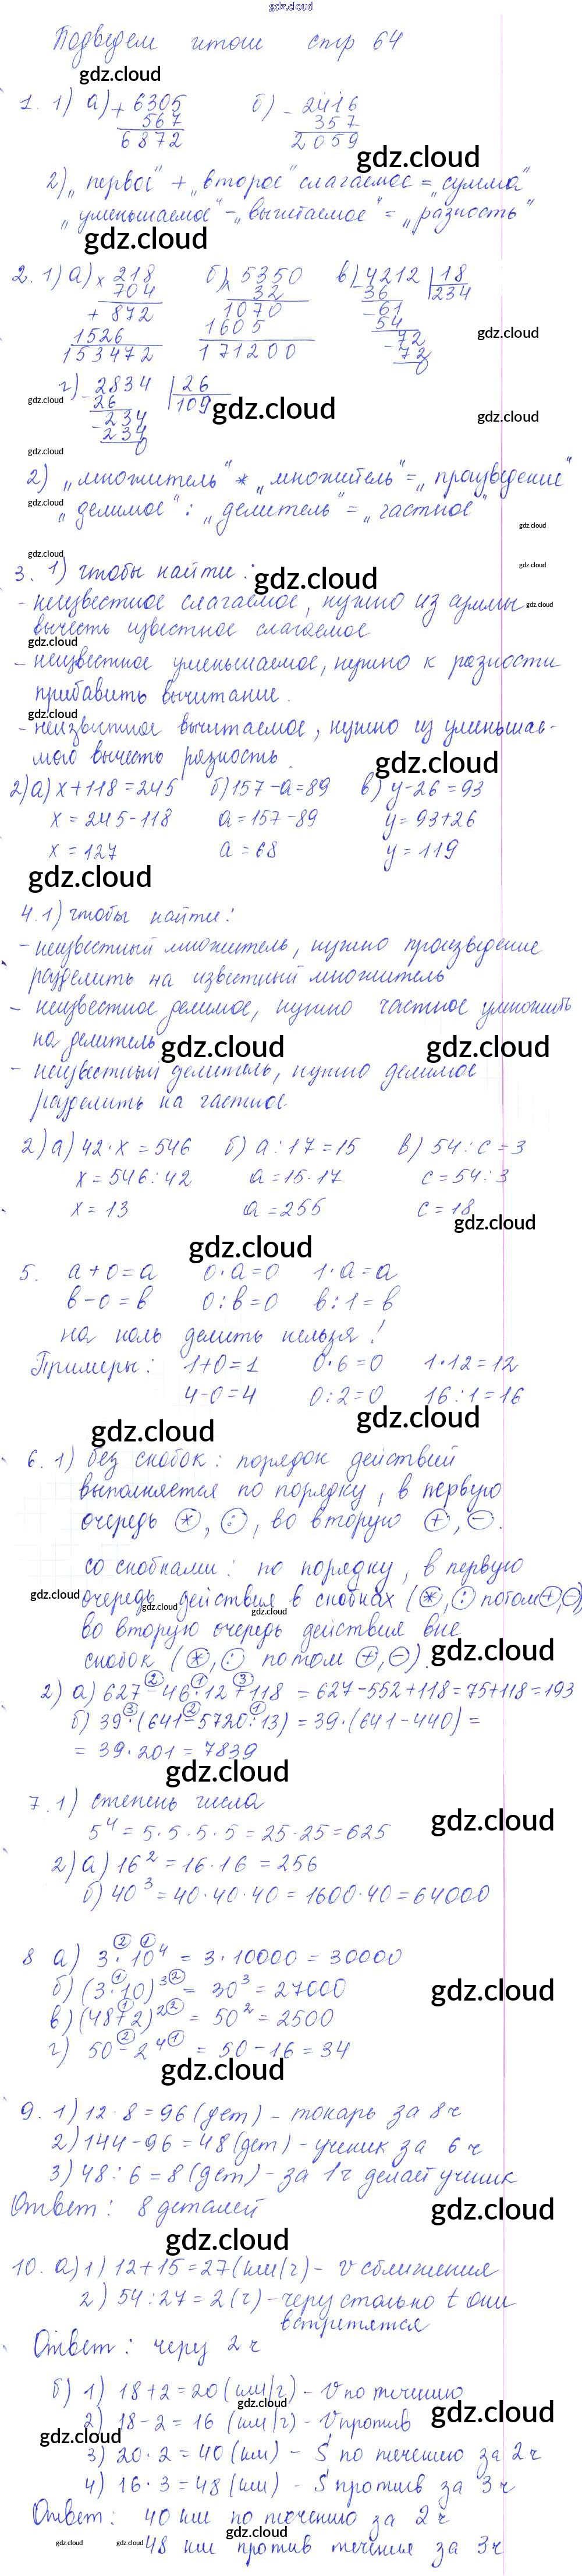 gdz.cloud
Подведем итоги стр 64
gdz.cloud
1. 1) а) + 6305 б) - 2416
567 357
6872 2059
gdz.cloud
2) „первое" + „второе" слагаемое = „сумма"
„уменьшаемое" - „вычитаемое" = „разность"
gdz.cloud
2. 1) а) × 218 б) × 5350 в) - 4212 | 18
704 32 36 234
+ 872 1070 - 61
1526 1605 54
153472 171200 - 72
72
0
gdz.cloud
г) - 2834 | 26
26 109
- 234
234
0
gdz.cloud gdz.cloud gdz.cloud
gdz.cloud
2) „множитель" * „множитель" = „произведение"
„делимое" : „делитель" = „частное"
gdz.cloud gdz.cloud
gdz.cloud gdz.cloud
3. 1) чтобы найти:
gdz.cloud
- неизвестное слагаемое, нужно из суммы
gdz.cloud
вычесть известное слагаемое
gdz.cloud
- неизвестное уменьшаемое, нужно к разности
прибавить вычитание.
gdz.cloud
- неизвестное вычитаемое, нужно из уменьшае-
мого вычесть разность.
gdz.cloud
2) а) x + 118 = 245 б) 157 - a = 89 в) y - 26 = 93
x = 245 - 118 a = 157 - 89 y = 93 + 26
x = 127 a = 68 y = 119
gdz.cloud
4. 1) чтобы найти:
- неизвестный множитель, нужно произведение
разделить на известный множитель
- неизвестное делимое, нужно частное умножить
на делитель
gdz.cloud gdz.cloud
- неизвестный делитель, нужно делимое
разделить на частное
2) а) 42 · x = 546 б) a : 17 = 15 в) 54 : c = 3
x = 546 : 42 a = 15 · 17 c = 54 : 3
x = 13 a = 255 c = 18
gdz.cloud
gdz.cloud
5. a + 0 = a 0 · a = 0 1 · a = a
b - 0 = b 0 : b = 0 b : 1 = b
на ноль делить нельзя!
Примеры: 1 + 0 = 1 0 · 6 = 0 1 · 12 = 12
4 - 0 = 4 0 : 2 = 0 16 : 1 = 16
gdz.cloud gdz.cloud
6. 1) без скобок: порядок действий
выполняется по порядку, в первую
очередь *, :, во вторую +, -.
со скобками: по порядку, в первую
gdz.cloud
очередь действия в скобках (*, : потом +, -)
gdz.cloud gdz.cloud
во вторую очередь действия вне
скобок (*, : потом +, -).
gdz.cloud
2 1 3
2) а) 627 - 46 · 12 + 118 = 627 - 552 + 118 = 75 + 118 = 193
3 2 1
б) 39 · (641 - 5720 : 13) = 39 · (641 - 440) =
= 39 · 201 = 7839
gdz.cloud
7. 1) степень числа
gdz.cloud
5⁴ = 5 · 5 · 5 · 5 = 25 · 25 = 625
2) а) 16² = 16 · 16 = 256
б) 40³ = 40 · 40 · 40 = 1600 · 40 = 64000
2 1
8 а) 3 · 10⁴ = 3 · 10000 = 30000
1 2
б) (3 · 10)³ = 30³ = 27000
gdz.cloud
1 2
в) (48 + 2)² = 50² = 2500
2 1
г) 50 - 2⁴ = 50 - 16 = 34
gdz.cloud
9. 1) 12 · 8 = 96 (дет) - токарь за 8 ч
2) 144 - 96 = 48 (дет) - ученик за 6 ч
3) 48 : 6 = 8 (дет) - за 1 ч делает ученик
Ответ: 8 деталей
gdz.cloud
gdz.cloud
10. а) 1) 12 + 15 = 27 (км/ч) - v сближения
2) 54 : 27 = 2 (ч) - через столько t они
встретятся
Ответ: через 2 ч
б) 1) 18 + 2 = 20 (км/ч) - v по течению
gdz.cloud gdz.cloud
2) 18 - 2 = 16 (км/ч) - v против
gdz.cloud
3) 20 · 2 = 40 (км) - S по течению за 2 ч
4) 16 · 3 = 48 (км) - S против за 3 ч
Ответ: 40 км по течению за 2 ч
gdz.cloud
gdz.cloud gdz.cloud
48 км против течения за 3 ч